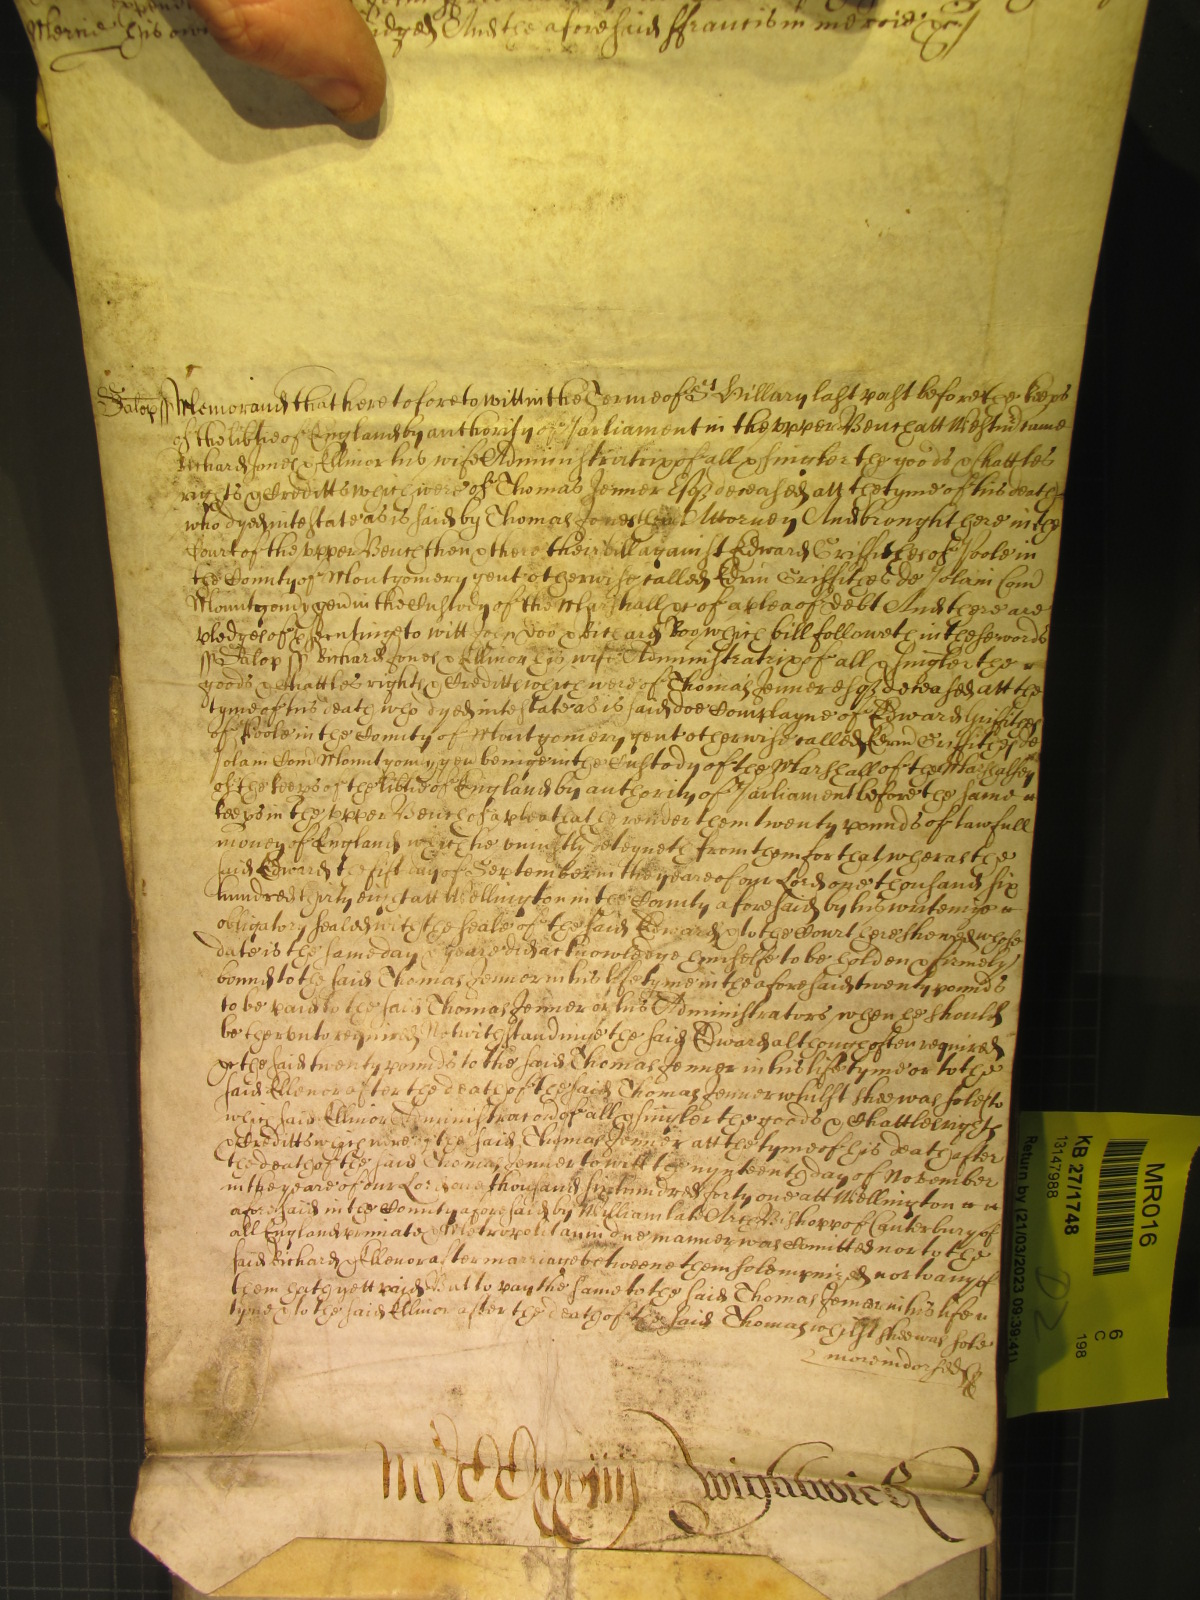 Mercie his owne idged And the aforesaid Ffrancis in mercie &c
Salop ss Memorand that heretofore to witt in the Terme of St Hillary last past before the keeps
of the libtie of England by authority of Parliament in the upper Bench att Westm came
Richard Jones & Ellinor his wife Administratrix of all & singler the goods & chattles
rights & Creditts which were of Thomas Jenner Esqr deceased att the tyme of his death
who dyed intestate as is said by Thomas Jones their Attorney And brought here in the
Court of the upper Bench then & there their bill against Edward Griffithes of Poole in
the County of Mountgomery gent otherwise called Edrm Griffithes de Polain Com
Mountgomy gen in the Custody of the Marshall &c of a plea of debt And there are
pledges of psecutinge to witt John Doo & Richard Roo which bill followeth in these words
ss Salop ss Richard Jones & Ellinor his wife Administratrix of all & singler the
goods & chattles rights & Creditts which were of Thomas Jenner esqr deceased att the
tyme of his death who dyed intestate as is said doe Complayne of Edward Griffithes
of Poole in the County of Mountgomery gent otherwise called Edrm Griffithes de
Polain Com Mountgomy gen beinge in the Custody of the Marshall of the Marshalsey
of the keeps of the libtie of England by authority of Parliament before the same
keeps in the upper Bench of a plea that he render them twenty pounds of lawfull
money of England which he uniustly deteyneth from them for that wheras the
said Edward the first day of September in the yeare of our Lord one thousand six
hundred thirty eight att Wellington in the County aforesaid by his writeinge
obligatory sealed with the seale of the said Edward & to the Court here shewed whose
date is the same day & yeare did acknowledge himselfe to be holden & firmely
bound to the said Thomas Jenner in his life tyme in the aforesaid twenty pounds
to be paid to the said Thomas Jenner or his Administrators when he should
be therunto required Notwithstandinge the said Edward although often required
&c the said twenty pounds to the said Thomas Jenner in his life tyme or to the
said Ellenor after the death of the said Thomas Jenner whilst shee was sole to
which said Ellinor Administracon of all & singler the goods & chattles rights
& Creditts which were of the said Thomas Jenner att the tyme of his death after
the death of the said Thomas Jenner to witt the nynteenth day of November
in the yeare of our Lord one thousand six hundred forty one att Wellington
aforesaid in the County aforesaid by William late Arch Bishopp of Canterbury of
all England primate & Metropolitan in due manner was Comitted nor to the
said Richard & Ellenor after marriage betweene them solempnized nor to any of
them hath yett paid But to pay the same to the said Thomas Jenner in his life
tyme & to the said Ellinor after the death of the said Thomas whilst shee was sole
more in dorso
Wightwick
MR016
KB 27/1748
13147988
Return by (21/03/2023 09:39:41)
6
C
198
D2